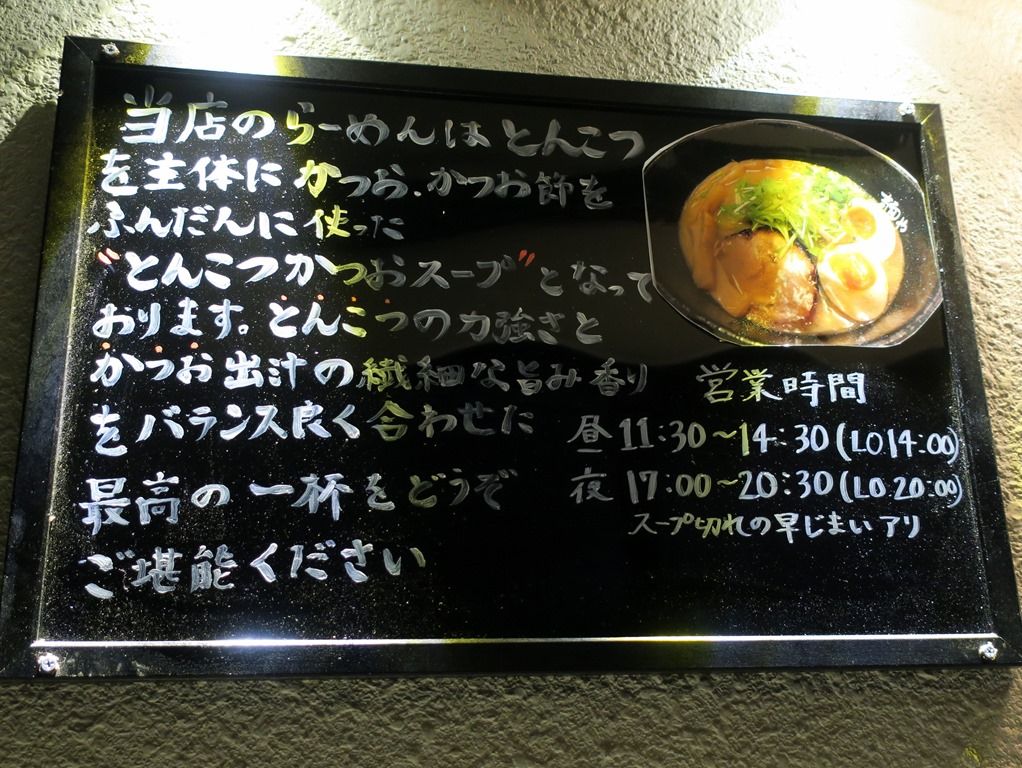 当店のらーめんはとんこつ
を主体にかつお、かつお節を
ふんだんに使った
"とんこつかつおスープ"となって
おります。とんこつの力強さと
かつお出汁の繊細な旨み香り
をバランス良く合わせた
最高の一杯をどうぞ
ご堪能ください
営業時間
昼 11:30~14:30(LO14:00)
夜 17:00~20:30(LO20:00)
スープ切れの早じまいアリ